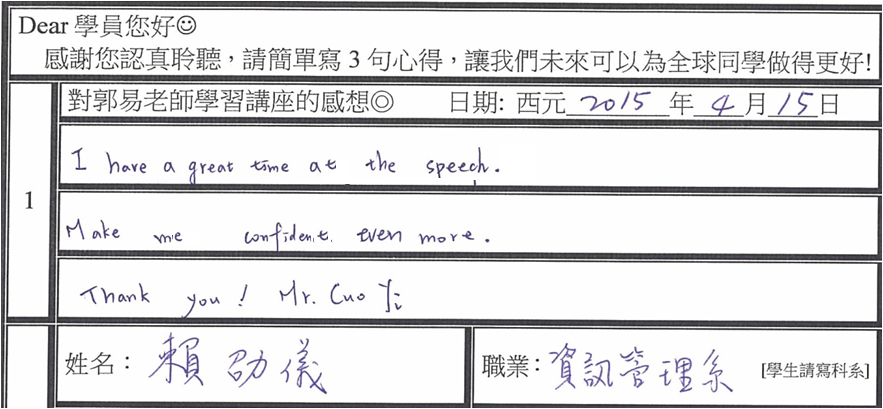 Dear 學員您好☺
感謝您認真聆聽，請簡單寫 3 句心得，讓我們未來可以為全球同學做得更好!
對郭易老師學習講座的感想◎ 日期: 西元 2015 年 4 月 15 日
1
I have a great time at the speech.
Make me confident even more.
Thank you! Mr. Cuo Yi
姓名： 賴劭儀 職業： 資訊管理系 [學生請寫科系]